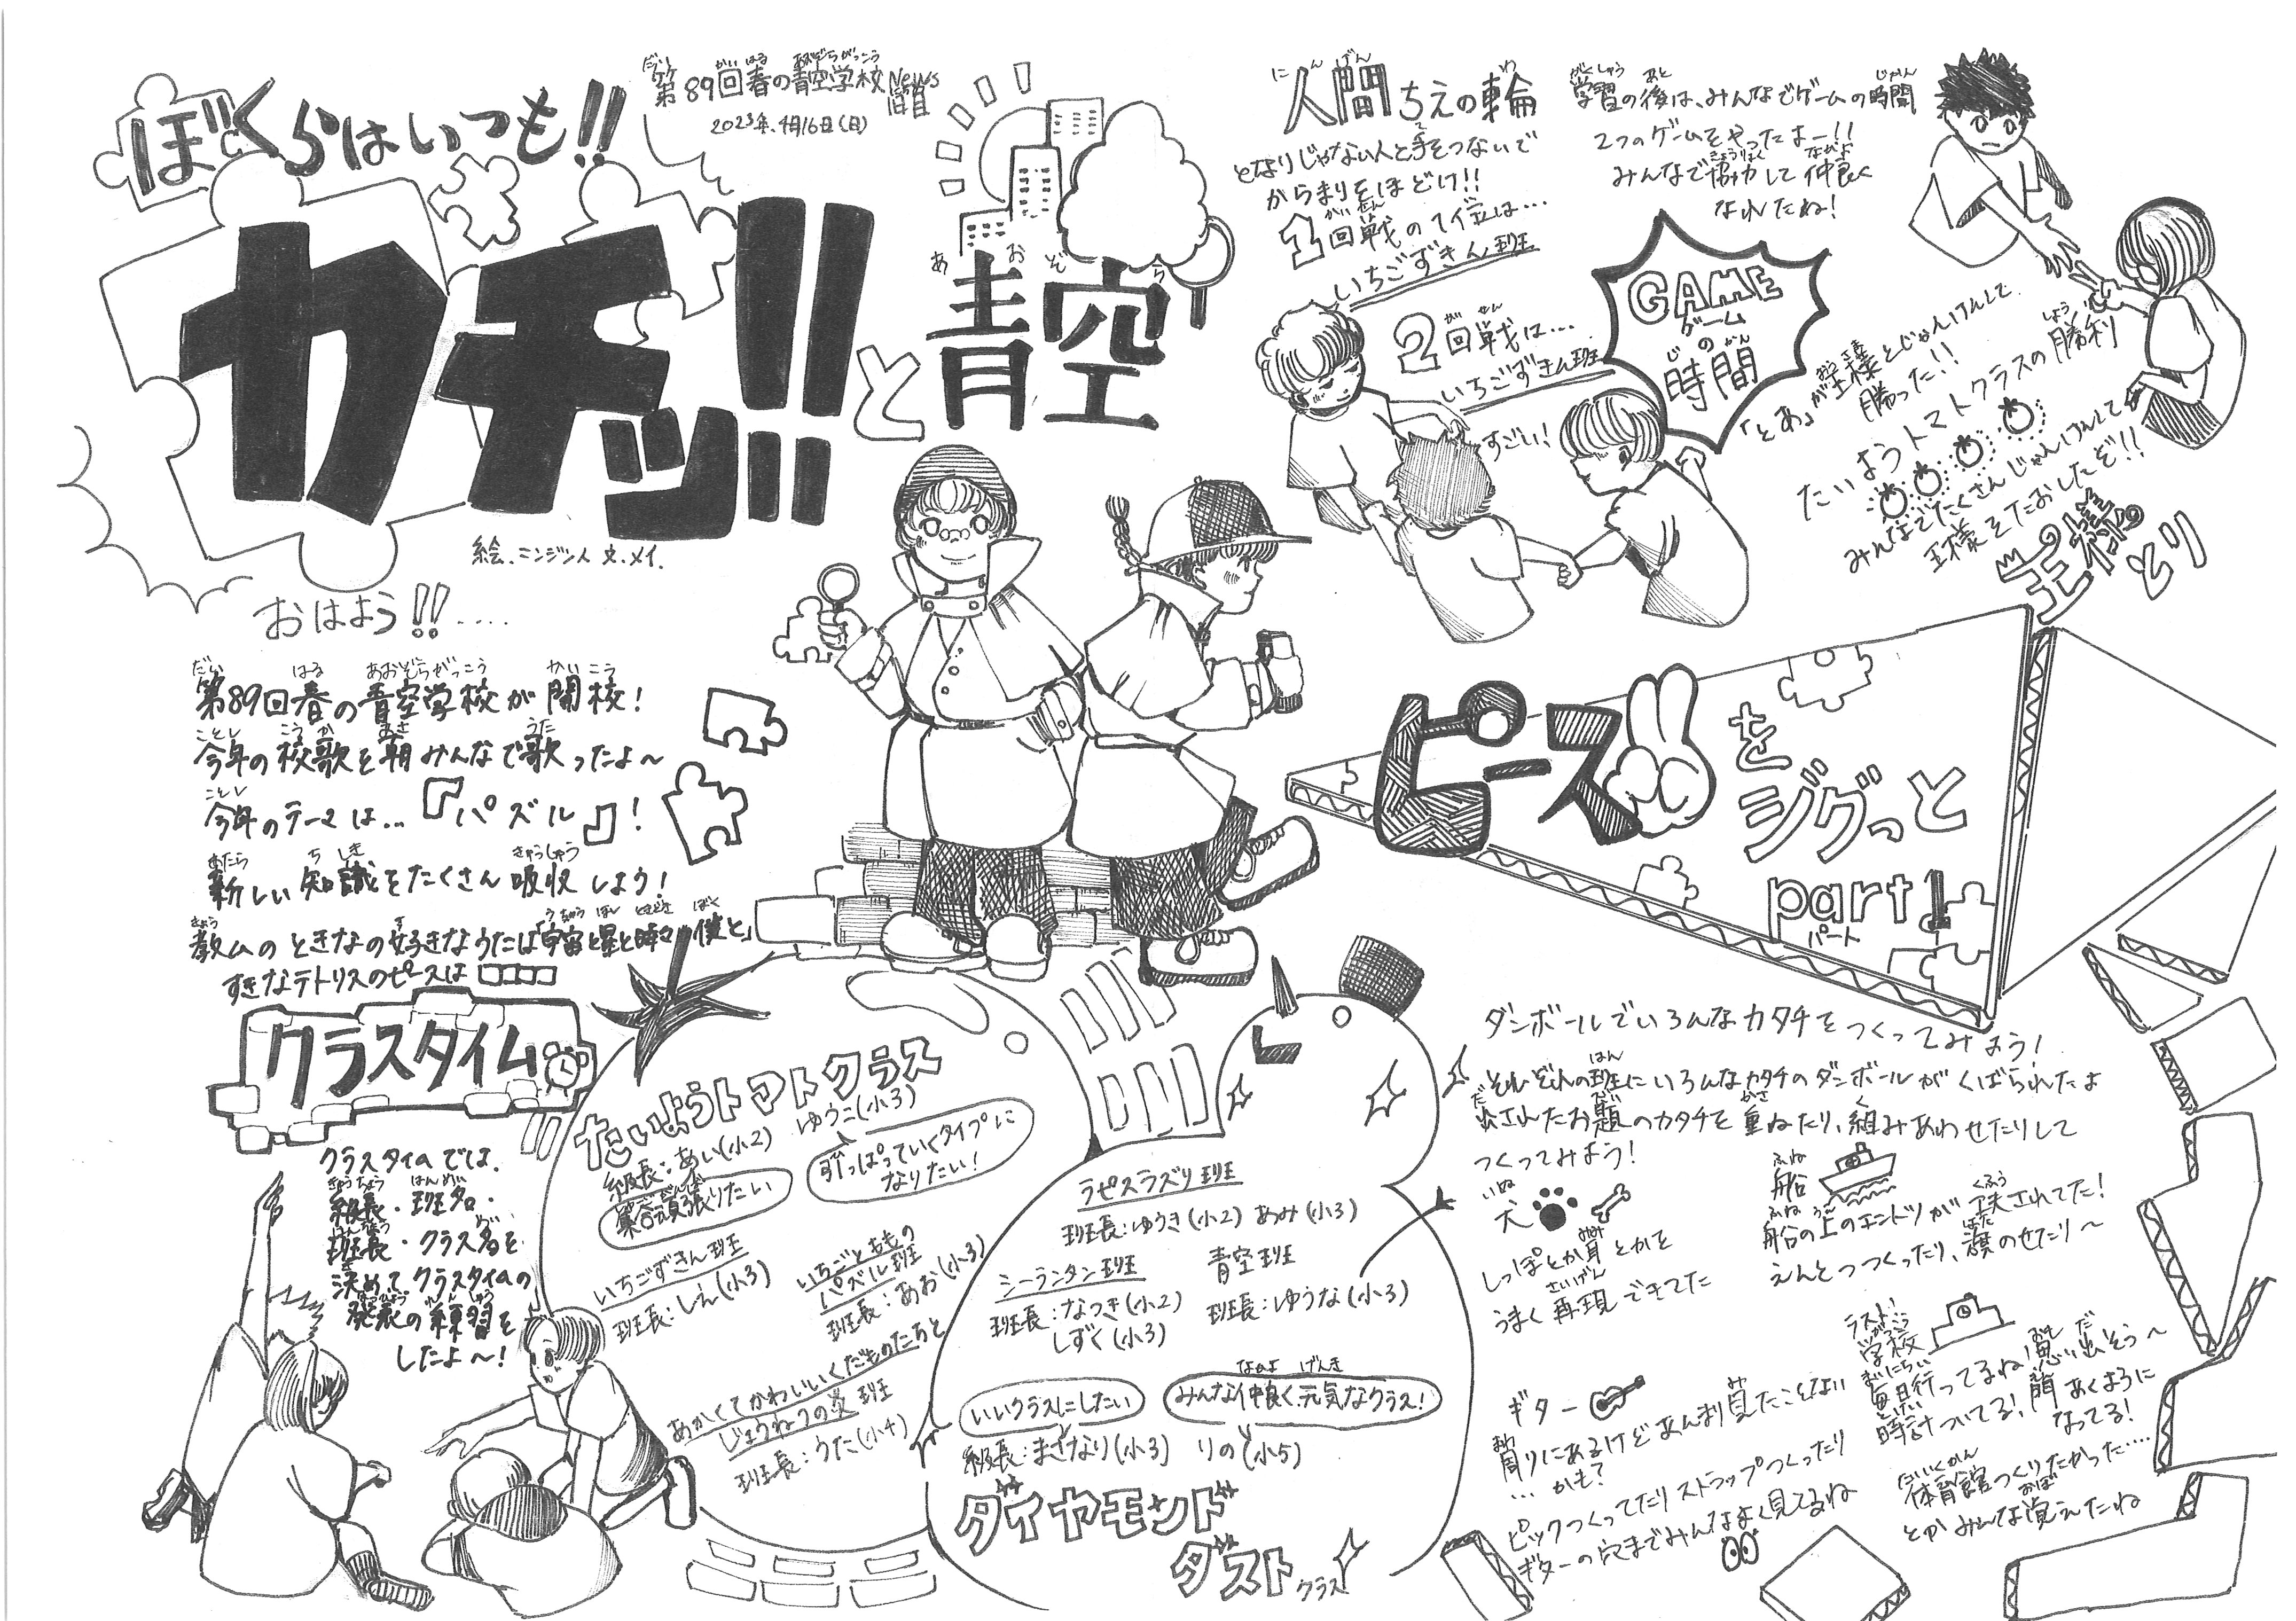 第89回春の青空学校News
1日目
2023年.4月16日(日)
ぼくらはいつも!!
カチッ!!と青空
絵.ニンジン人 文.メイ.
おはよう!!....
第89回春の青空学校が開校!
今年の校歌を朝みんなで歌ったよ〜
今年のテーマは…『パズル』!
新しい知識をたくさん吸収しよう!
教ムのときなの好きなうたは「宇宙と星と時々僕と」
すきなテトリスのピースは
クラスタイム
クラスタイムでは、
級長・班名・
班長・クラス名を
決めてクラスタイムの
発表の練習を
したよ〜!
たいようトマトクラス
級長:あい(小2) ゆうこ(小3)
頑張りたい
引っぱっていくタイプに
なりたい!
いちごずきん班
班長:しえ(小3)
いちごとももの
パズル班
班長:あお(小3)
あかくてかわいいくだものたちと
じょうねつの炎班
班長:うた(小4)
ラピスラズリ班
班長:ゆうき(小2) あみ(小3)
シーランタン班
班長:なつき(小2)
しずく(小3)
青空班
班長:ゆうな(小3)
いいクラスにしたい
みんな仲良く、元気なクラス!
級長:まさなり(小3) りの(小5)
ダイヤモンド
ダストクラス
人間ちえの輪
となりじゃない人と手をつないで
からまりをほどけ!!
1回戦の1位は…
いちごずきん班
2回戦は…
いちごずきん班
すごい!
学習の後は、みんなでゲームの時間
2つのゲームをやったよー!!
みんなで協力して仲良く
なれたね!
GAME
ゲーム
の
時間
「とあ」が王様とじゃんけんして
勝った!!
たいようトマトクラスの勝利
みんなでたくさんじゃんけんして
王様をたおしたぞ!!
王様とり
ピースをジグっと
part1
パート
ダンボールでいろんなカタチをつくってみよう!
それぞれの班にいろんなカタチのダンボールがくばられたよ
出されたお題のカタチを重ねたり、組みあわせたりして
つくってみよう!
犬
しっぽとか耳とかを
うまく再現できてた
船
船の上のエントツが工夫されてた!
えんとつつくったり、旗のせたり〜
ギター
周りにあるけどあんまり見たことない
…かも?
ピックつくってたりストラップつくったり
ギターの穴までみんなよく見てるね
ラスト!
学校
毎日行ってるね!思い出そう〜
時計ついてる!,門あくように
なってる!
体育館つくりたかった….
とかみんな覚えたね